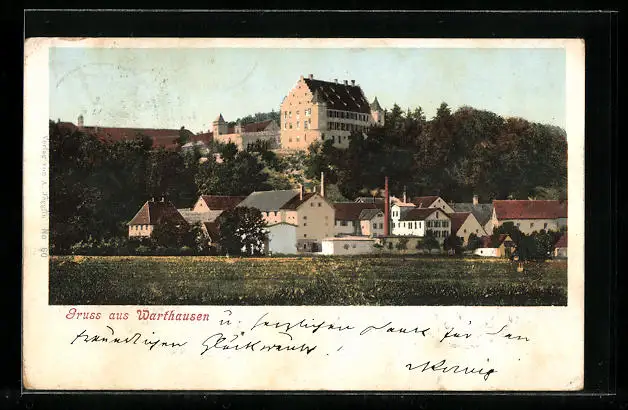 Gruss aus Warthausen
u. herzlichen Dank für den
freundlichen Glückwunsch!